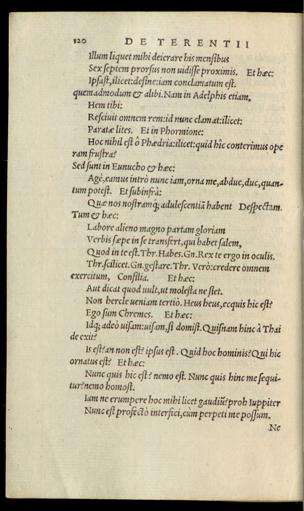 120 DE TERENTII
Illum liquet mihi deierare his mensibus
Sex septem prorsus non uidisse proximis. Et hæc:
Ipsast, ilicet: desine: iam conclamatum est.
quem admodum & alibi. Nam in Adelphis etiam,
Hem tibi:
Resciuit omnem rem: id nunc clamat: ilicet:
Paratæ lites. Et in Phormione:
Hoc nihil est ô Phædria: ilicet: quid hîc conterimus ope
ram frustra?
Sed sunt in Eunucho & hæc:
Age, eamus intrò nunc iam, orna me, abduc, duc, quan-
tum potest. Et subinfrà:
Quæ nos nostramq; adulescentiã habent Despectam.
Tum & hæc:
Labore alieno magno partam gloriam
Verbis sæpe in se transfert, qui habet salem,
Quod in te est. Thr. Habes. Gn. Rex te ergo in oculis.
Thr. scilicet. Gn. gestare. Thr. Verò: credere omnem
exercitum, Consilia. Et hæc:
Aut dicat quod uult, ut molesta ne siet.
Non hercle ueniam tertiò. Heus heus, ecquis hic est?
Ego sum Chremes. Et hæc:
Idq; adeò uisam: uisam, si domist. Quisnam hinc à Thai
de exit?
Is est? an non est? ipsus est. Quid hoc hominis? Qui hic
ornatus est? Et hæc:
Nunc quis hic est? nemo est. Nunc quis hinc me sequi-
tur? nemo homost.
Iam ne erumpere hoc mihi licet gaudiũ? proh Iuppiter
Nunc est profectò interfici, cùm perpeti me possum.
Ne